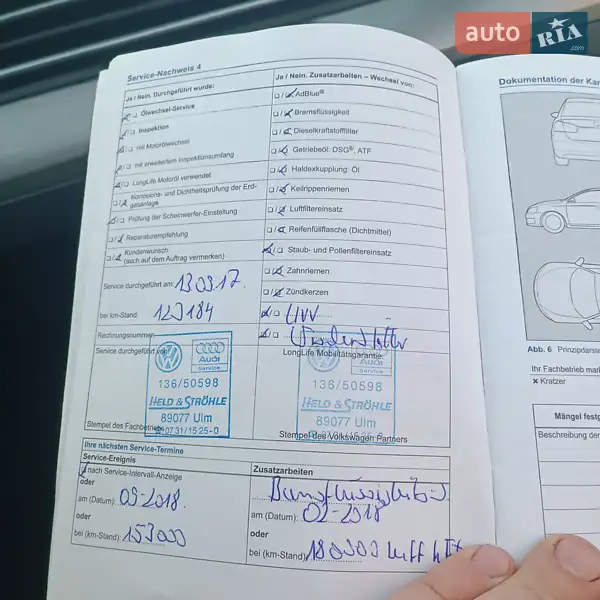 auto RIA .com
Service-Nachweis 4
Ja / Nein. Durchgeführt wurde:
Ölwechsel-Service
Inspektion
mit Motorölwechsel
mit erweitertem Inspektionsumfang
LongLife Motoröl verwendet
Korrosions- und Dichtheitsprüfung der Erd-
gasanlage
Prüfung der Scheinwerfer-Einstellung
Reparaturempfehlung
Kundenwunsch
(auch auf dem Auftrag vermerken)
Service durchgeführt am: 13.09.17.
bei km-Stand: 123184
Rechnungsnummer:
Service durchgeführt von:
Audi
Service
136/50598
HELD & STRÖHLE
89077 Ulm
0731/1525-0
Stempel des Fachbetriebs
Ja / Nein. Zusatzarbeiten – Wechsel von:
AdBlue®
Bremsflüssigkeit
Dieselkraftstofffilter
Getriebeöl: DSG®, ATF
Haldexkupplung: Öl
Keilrippenriemen
Luftfiltereinsatz
Reifenfüllflasche (Dichtmittel)
Staub- und Pollenfiltereinsatz
Zahnriemen
Zündkerzen
LongLife Mobilitätsgarantie:
Audi
Service
136/50598
HELD & STRÖHLE
89077 Ulm
Stempel des Volkswagen Partners
Ihre nächsten Service-Termine
Service-Ereignis
nach Service-Intervall-Anzeige
oder
am (Datum): 09-2018.
oder
bei (km-Stand): 153000
Zusatzarbeiten
am (Datum): 02-2018
oder
bei (km-Stand) 180000
Dokumentation der Kar
Abb. 6 Prinzipdarste
Ihr Fachbetrieb mar
× Kratzer
Mängel festg
Beschreibung der